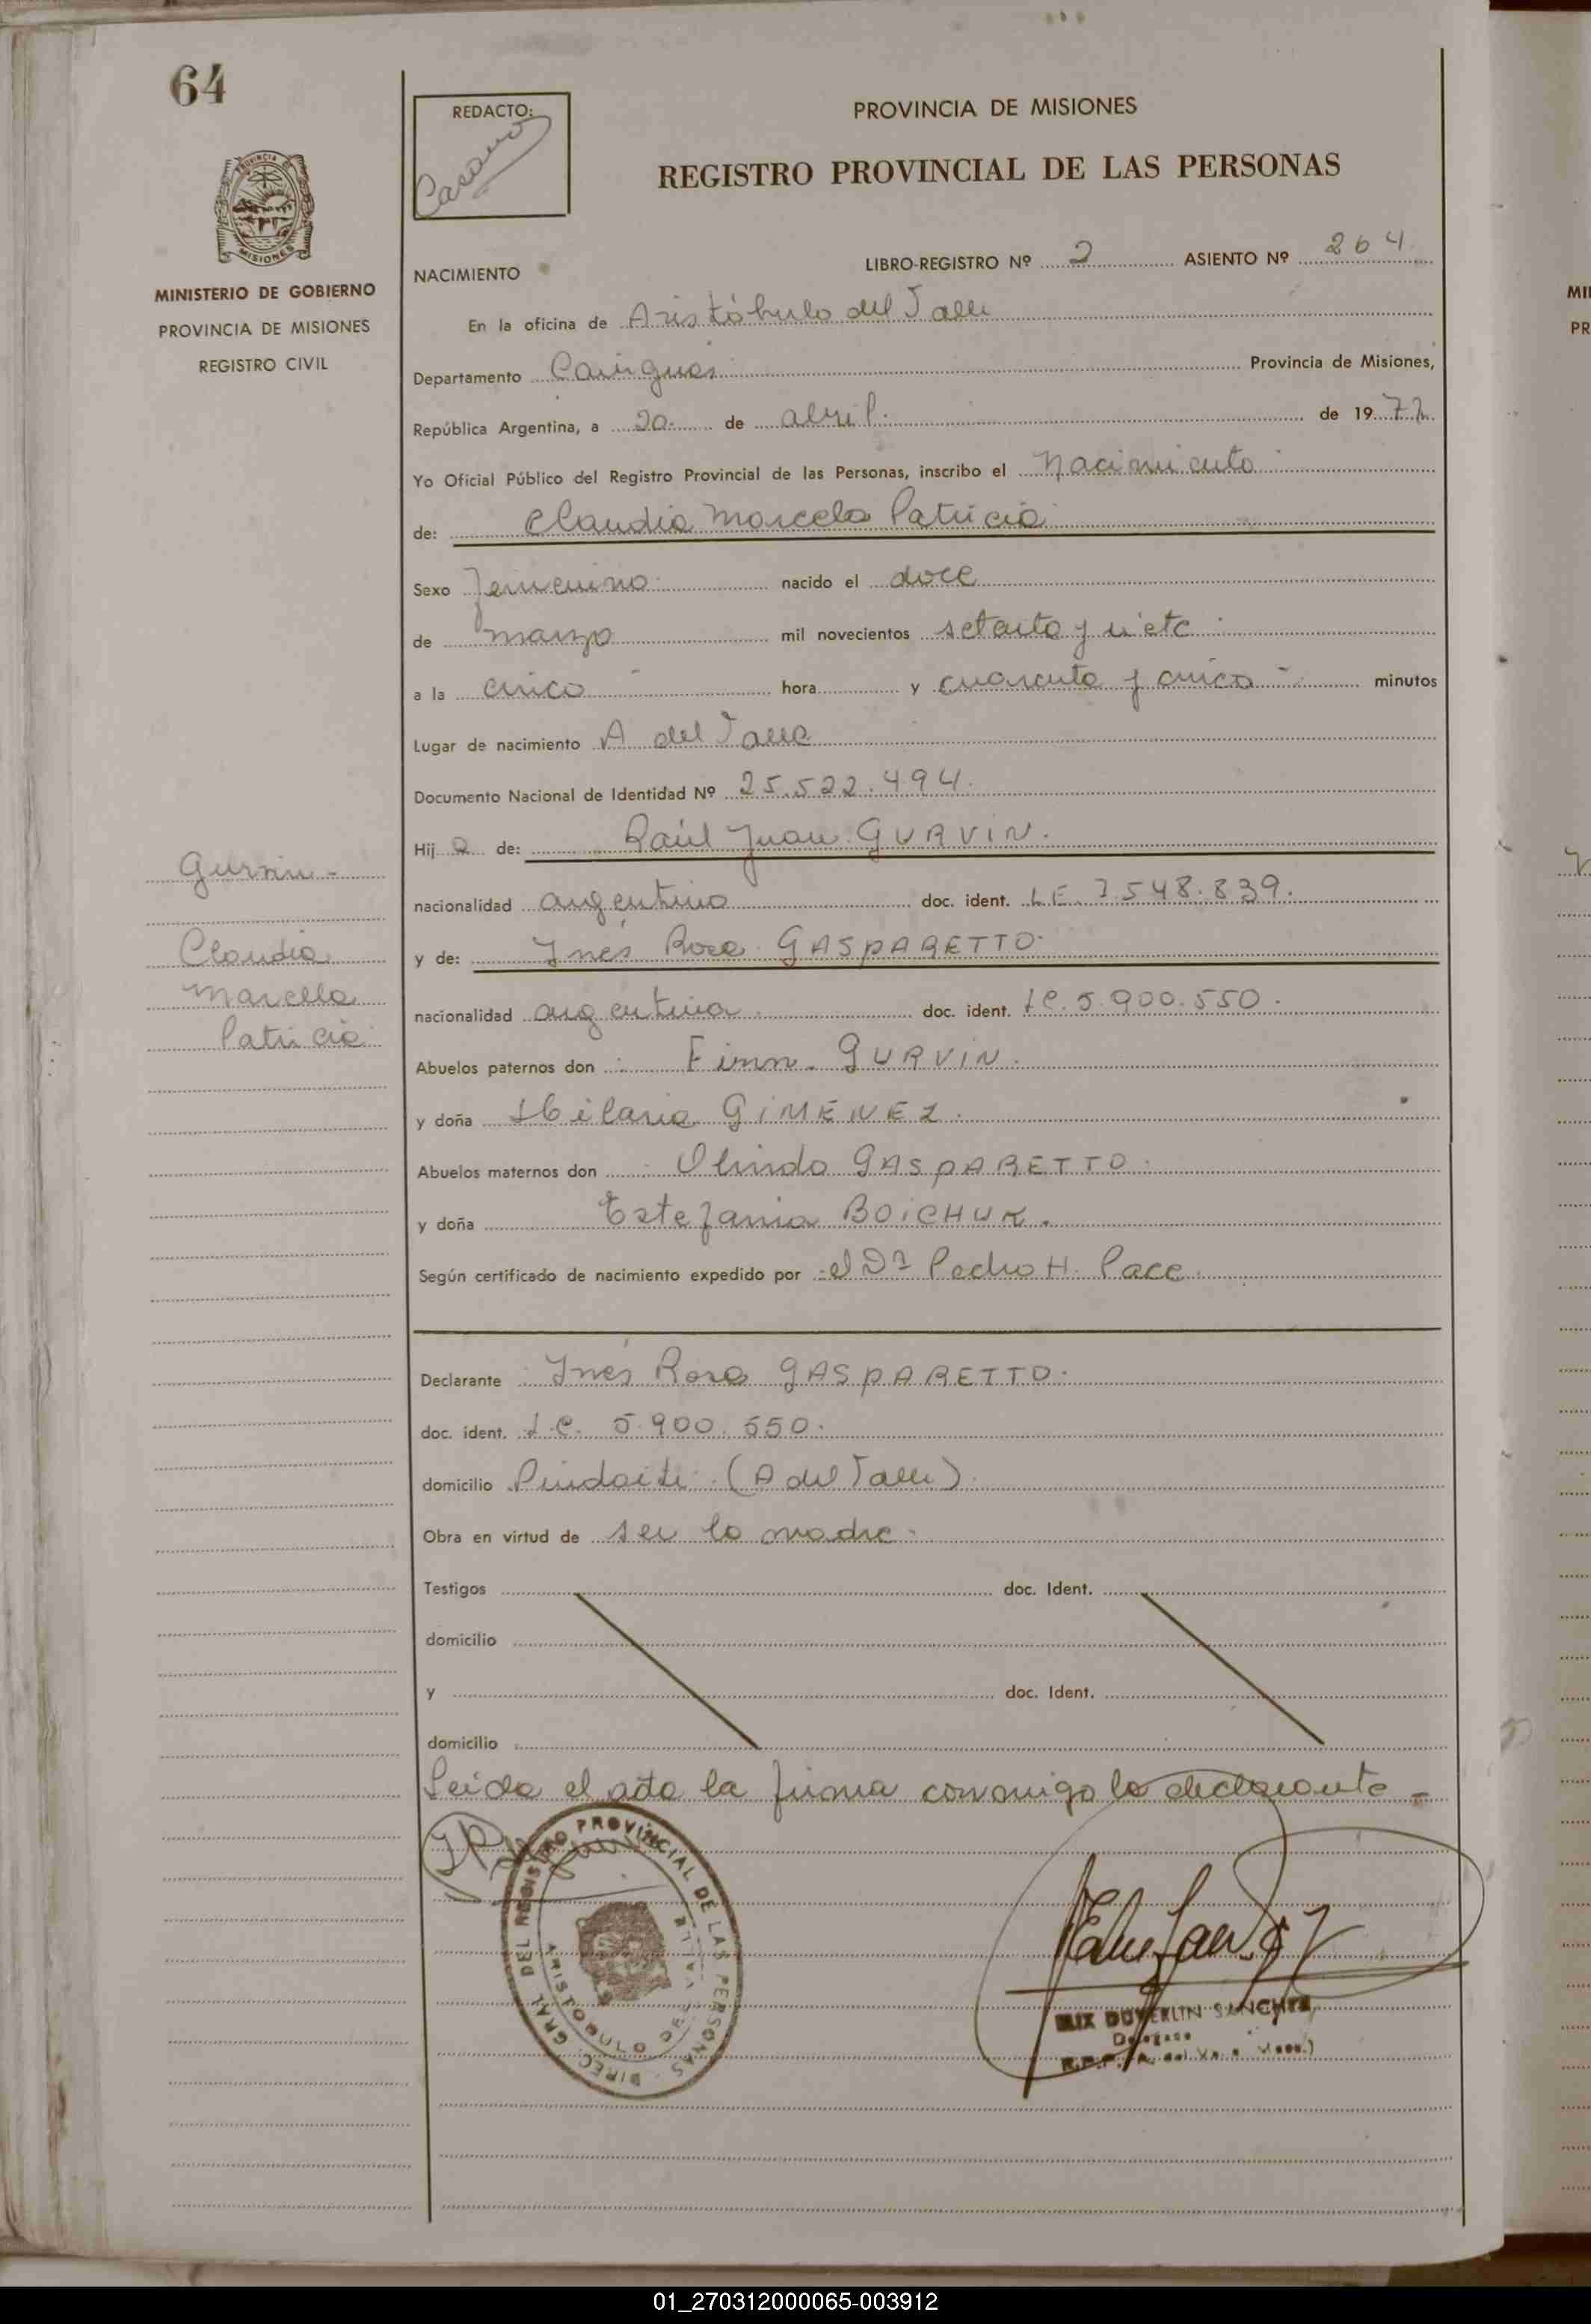 64
REDACTO:
PROVINCIA DE MISIONES
REGISTRO PROVINCIAL DE LAS PERSONAS
PROVINCIA DE MISIONES
MINISTERIO DE GOBIERNO
PROVINCIA DE MISIONES
REGISTRO CIVIL
NACIMIENTO
LIBRO-REGISTRO Nº 2 ASIENTO Nº 264
En la oficina de Aristóbulo del Valle
Departamento Cainguas Provincia de Misiones,
República Argentina, a 20 de abril de 1977
Yo Oficial Público del Registro Provincial de las Personas, inscribo el nacimiento
de: Claudia Marcela Patricia
Sexo femenino nacido el doce
de marzo mil novecientos setenta y siete
a la cinco hora y cuarenta y cinco minutos
Lugar de nacimiento A del Valle
Documento Nacional de Identidad Nº 25.522.494.
Hija de: Raúl Juan GURVIN.
nacionalidad argentino doc. ident. L.E. 7.548.839.
y de: Inés Rosa GASPARETTO
nacionalidad argentina doc. ident. LC. 5.900.550.
Abuelos paternos don Finn GURVIN.
y doña Hilaria GIMENEZ.
Abuelos maternos don Olindo GASPARETTO.
y doña Estefania BOICHUK.
Según certificado de nacimiento expedido por el Dr Pedro H. Pace
Gurvin -
Claudia
Marcela
Patricia
Declarante Inés Rosa GASPARETTO.
doc. ident. L.C. 5.900.550.
domicilio Pindaiti (A del Valle)
Obra en virtud de ser la madre.
Testigos doc. Ident.
domicilio
y doc. Ident.
domicilio
Leida el acta la firma conmigo la declarante -
DIREC. GRAL. DEL REGISTRO PROVINCIAL DE LAS PERSONAS
ARISTOBULO DEL VALLE
DUVERLIN SANCHEZ
Delegado
01_270312000065-003912